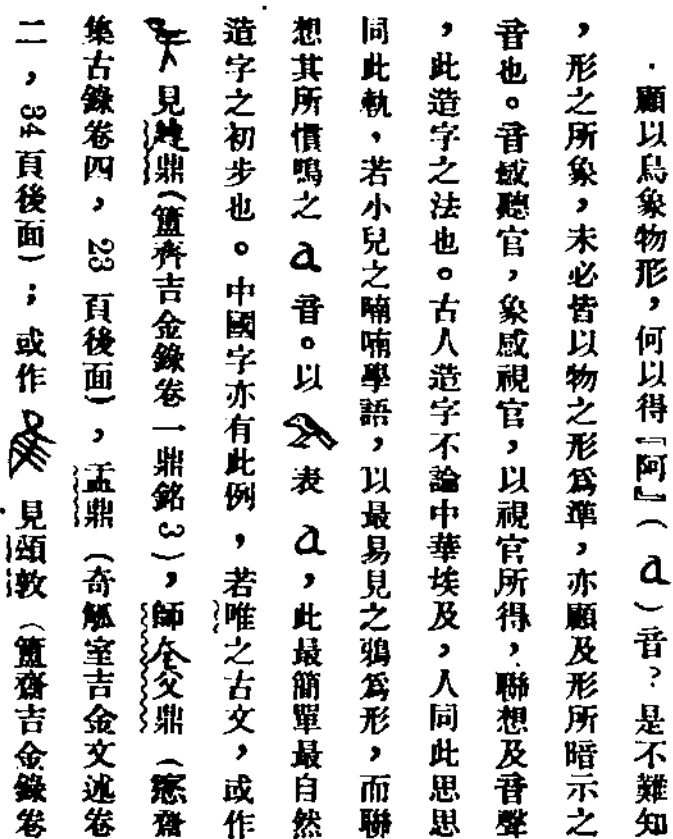 顧以鳥象物形，何以得『阿』（a）音？是不難知
，形之所象，未必皆以物之形爲準，亦顧及形所暗示之
音也。音感聽官，象感視官，以視官所得，聯想及音聲
，此造字之法也。古人造字不論中華埃及，人同此思思
同此軌，若小兒之喃喃學語，以最易見之鴉爲形，而聯
想其所慣鳴之a音。以表a，此最簡單最自然
造字之初步也。中國字亦有此例，若唯之古文，或作
見鼎（簠齋吉金錄卷一鼎銘3），師父鼎（愙齋
集古錄卷四，23頁後面），盂鼎（奇觚室吉金文述卷
二，34頁後面）；或作見頌敦（簠齋吉金錄卷